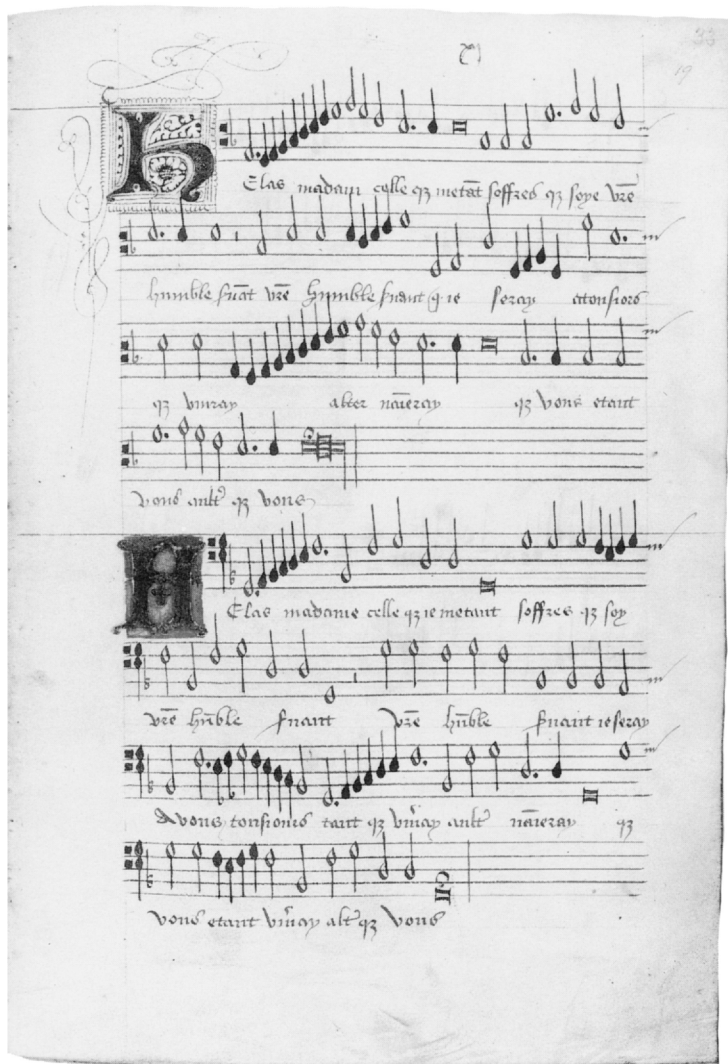 33
19
Elas madam celle qȝ metāt soffres qȝ soye vr̄e
humble s̄uāt vr̄e humble s̄uant q ie seray atousiors
qȝ viuray alter naīeray qȝ vous etant
vous ault̄ qȝ vous
Elas madame celle qȝ ie metant soffres qȝ soy
vr̄e hūble s̄uant vr̄e hūble s̄uant ie seray
A vous tousiours tant qȝ viuray ault̄ naīeray qȝ
vous etant viuray alt̄ qȝ vous